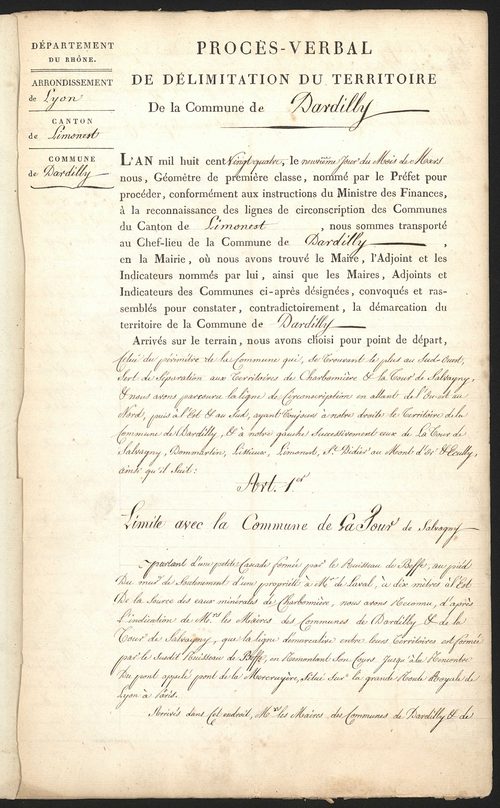 DÉPARTEMENT
DU RHÔNE.
ARRONDISSEMENT
de Lyon
CANTON
de Limonest
COMMUNE
de Dardilly
PROCÈS-VERBAL
DE DÉLIMITATION DU TERRITOIRE
De la Commune de Dardilly
L'AN mil huit cent Vingt quatre, le neuvième jour du Mois de Mars
nous, Géomètre de première classe, nommé par le Préfet pour
procéder, conformément aux instructions du Ministre des Finances,
à la reconnaissance des lignes de circonscription des Communes
du Canton de Limonest, nous sommes transporté
au Chef-lieu de la Commune de Dardilly,
en la Mairie, où nous avons trouvé le Maire, l'Adjoint et les
Indicateurs nommés par lui, ainsi que les Maires, Adjoints et
Indicateurs des Communes ci-après désignées, convoqués et ras-
semblés pour constater, contradictoirement, la démarcation du
territoire de la Commune de Dardilly
Arrivés sur le terrain, nous avons choisi pour point de départ,
Celui du périmètre de la Commune qui, se trouvant le plus au Sud-Ouest,
Sert de Séparation aux Territoires de Charbonnière & la Tour de Salvagny,
& nous avons parcouru la ligne de Circonscription en allant de l'Ouest au
Nord, puis à l'Est & au Sud, ayant toujours à notre droite le Territoire de la
Commune de Dardilly, & à notre gauche Successivement ceux de La Tour de
Salvagny, Dommartin, Lissieux, Limonest, St. Didier au Mont d'or & Ecully,
ainsi qu'il Suit:
Art. 1er
Limite avec la Commune de La Tour de Salvagny
partant d'une petite Cascade formée par le Ruisseau de Beffe, au pied
Du mur de Soutenement d'une propriété à Mr. de Laval, à dix mètres à l'Est
De la Source des eaux minérales de Charbonnière, nous avons Reconnu, d'après
l'indication de Mrs les Maires des Communes de Dardilly & de la
Tour de Salvagny, que la ligne démarcative entre leurs Territoires est formée
par le Susdit Ruisseau de Beffe, en Remontant Son Cours jusqu'à la Rencontre
Du pont appelé pont de la, Situé Sur la grande Route Royale de
Lyon à Paris.
Arrivés dans Cet endroit, Mrs les Maires des Communes de Dardilly & de